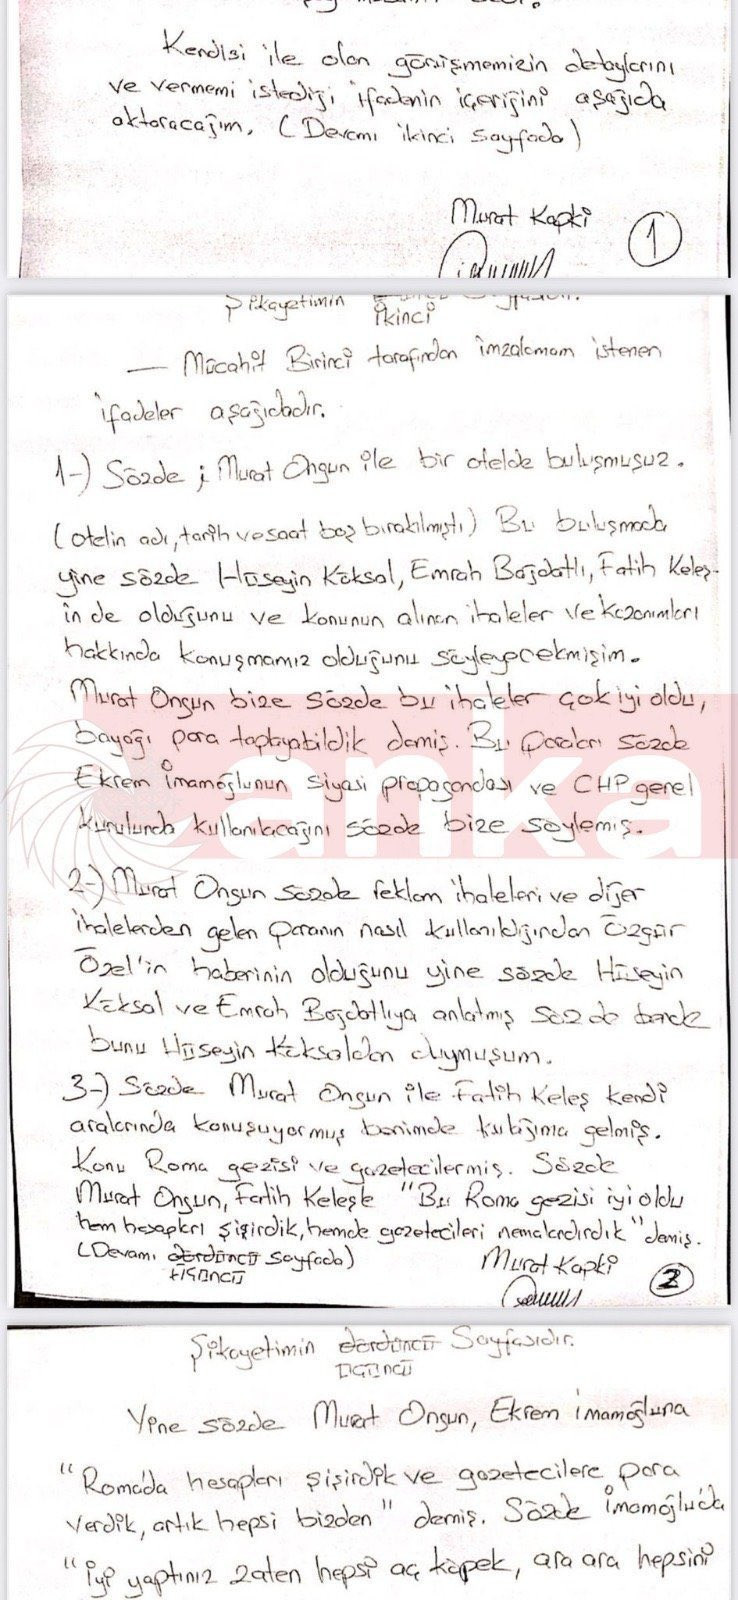 Kendisi ile olan görüşmemizin detaylarını
ve vermemi istediği ifadenin içeriğini aşağıda
aktaracağım. (Devamı ikinci sayfada)
Murat Kapki
1
Şikayetimin
ikinci
— Mücahit Birinci tarafından imzalamam istenen
ifadeler aşağıdadır.
1-) Sözde ; Murat Ongun ile bir otelde buluşmuşuz.
(otelin adı, tarih ve saat boş bırakılmıştı) Bu buluşmada
yine sözde Hüseyin Köksal, Emrah Bağdatlı, Fatih Keleş-
in de olduğunu ve konunun alınan ihaleler ve kazanımları
hakkında konuşmamız olduğunu söyleyecekmişim.
Murat Ongun bize sözde bu ihaleler çok iyi oldu,
bayağı para toplayabildik demiş. Bu paraları sözde
Ekrem İmamoğlunun siyasi propagandası ve CHP genel
kurulunda kullanılacağını sözde bize söylemiş.
anka
2-) Murat Ongun sözde reklam ihaleleri ve diğer
ihalelerden gelen paranın nasıl kullanıldığından Özgür
Özel'in haberinin olduğunu yine sözde Hüseyin
Köksal ve Emrah Bağdatlıya anlatmış sözde bende
bunu Hüseyin Köksaldan duymuşum.
3-) Sözde Murat Ongun ile Fatih Keleş kendi
aralarında konuşuyormuş benimde kulağıma gelmiş.
Konu Roma gezisi ve gazetecilermiş. Sözde
Murat Ongun, Fatih Keleşle "Bu Roma gezisi iyi oldu
hem hesapları şişirdik, hemde gazetecileri nemalandırdık" demiş.
(Devamı dördüncü sayfada)
üçüncü
Murat Kapki
2
Şikayetimin dördüncü Sayfasıdır.
üçüncü
Yine sözde Murat Ongun, Ekrem İmamoğluna
"Romada hesapları şişirdik ve gazetecilere para
verdik, artık hepsi bizden" demiş. Sözde İmamoğluda
"iyi yaptınız zaten hepsi aç köpek, ara ara hepsini